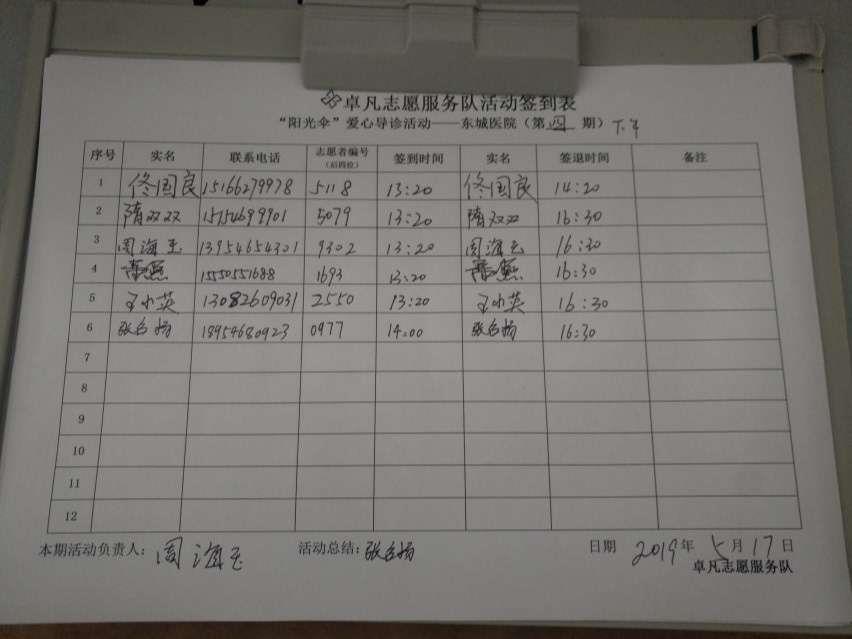 卓凡志愿服务队活动签到表
“阳光伞”爱心导诊活动——东城医院（第四期）下午
序号 实名 联系电话 志愿者编号（后四位） 签到时间 实名 签退时间 备注
1 佟国良 15166279978 5118 13:20 佟国良 14:20
2 隋双双 15154699901 5079 13:20 隋双双 16:30
3 周海玉 13954654301 9302 13:20 周海玉 16:30
4 15550551688 1693 13:20 16:30
5 王小英 13082609031 2550 13:20 王小英 16:30
6 张名扬 18954680923 0977 14:00 张名扬 16:30
7
8
9
10
11
12
本期活动负责人：周海玉 活动总结：张名扬 日期 2019年5月17日
卓凡志愿服务队